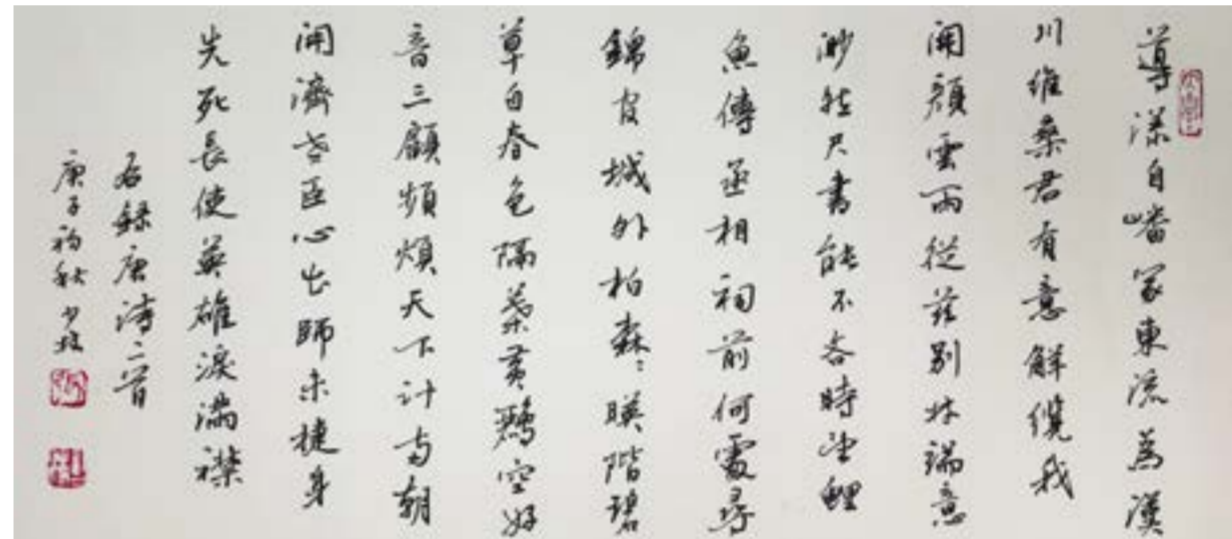 導漾自嶓冢東流為漢
川維桑君有意解纜我
開顏雲雨從茲別林端意
渺然尺書能不吝時望鯉
魚傳丞相祠前何處尋
錦官城外柏森〻暎階碧
草自春色隔葉黃鸝空好
音三顧頻煩天下計兩朝
開濟老臣心出師未捷身
先死長使英雄淚滿襟
右錄唐詩二首
庚子初秋少